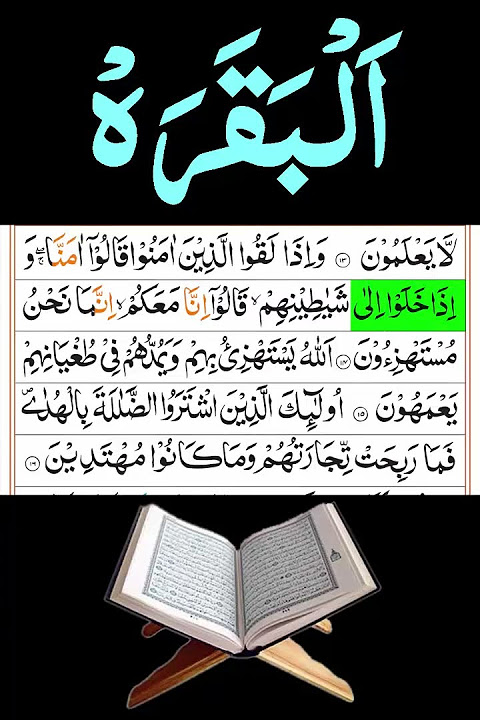 اَلْبَقَرَةْ
لَّا يَعْلَمُوْنَ ۝۱۳ وَاِذَا لَقُوا الَّذِيْنَ اٰمَنُوْا قَالُوْٓا اٰمَنَّا ۖۚ وَ
اِذَا خَلَوْا اِلٰى شَيٰطِيْنِهِمْ ۙ قَالُوْٓا اِنَّا مَعَكُمْ ۙ اِنَّمَا نَحْنُ
مُسْتَهْزِءُوْنَ ۝۱۴ اَللّٰهُ يَسْتَهْزِئُ بِهِمْ وَيَمُدُّهُمْ فِيْ طُغْيَانِهِمْ
يَعْمَهُوْنَ ۝۱۵ اُولٰٓئِكَ الَّذِيْنَ اشْتَرَوُا الضَّلٰلَةَ بِالْهُدٰى ۪
فَمَا رَبِحَتْ تِّجَارَتُهُمْ وَمَا كَانُوْا مُهْتَدِيْنَ ۝۱۶